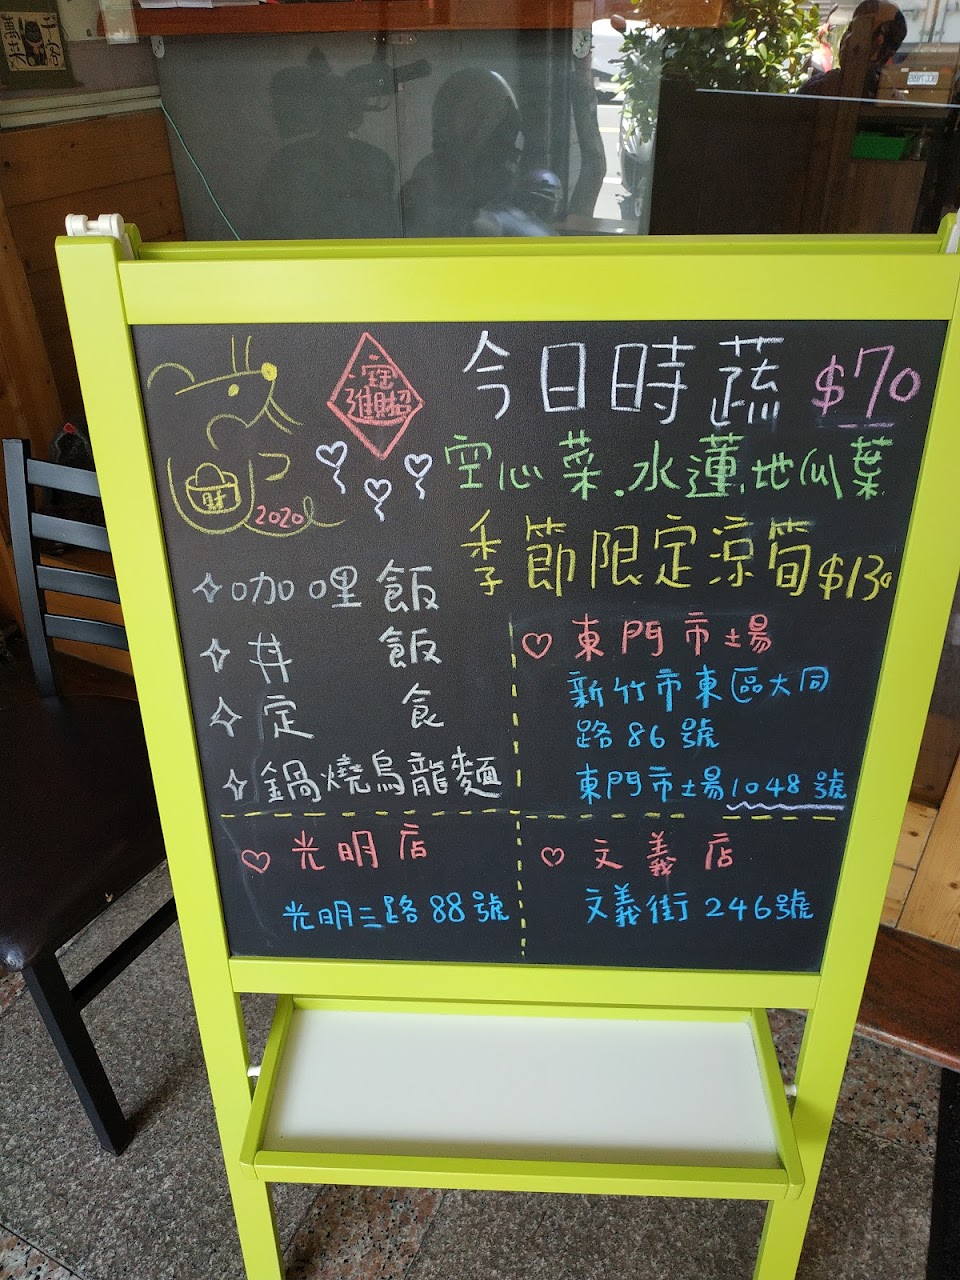 今日時蔬 $70
空心菜.水蓮.地瓜葉
季節限定涼筍 $130
招財進寶
財
2020
咖哩飯
丼 飯
定 食
鍋燒烏龍麵
東門市場
新竹市東區大同
路86號
東門市場1048號
光明店
光明三路88號
文義店
文義街246號